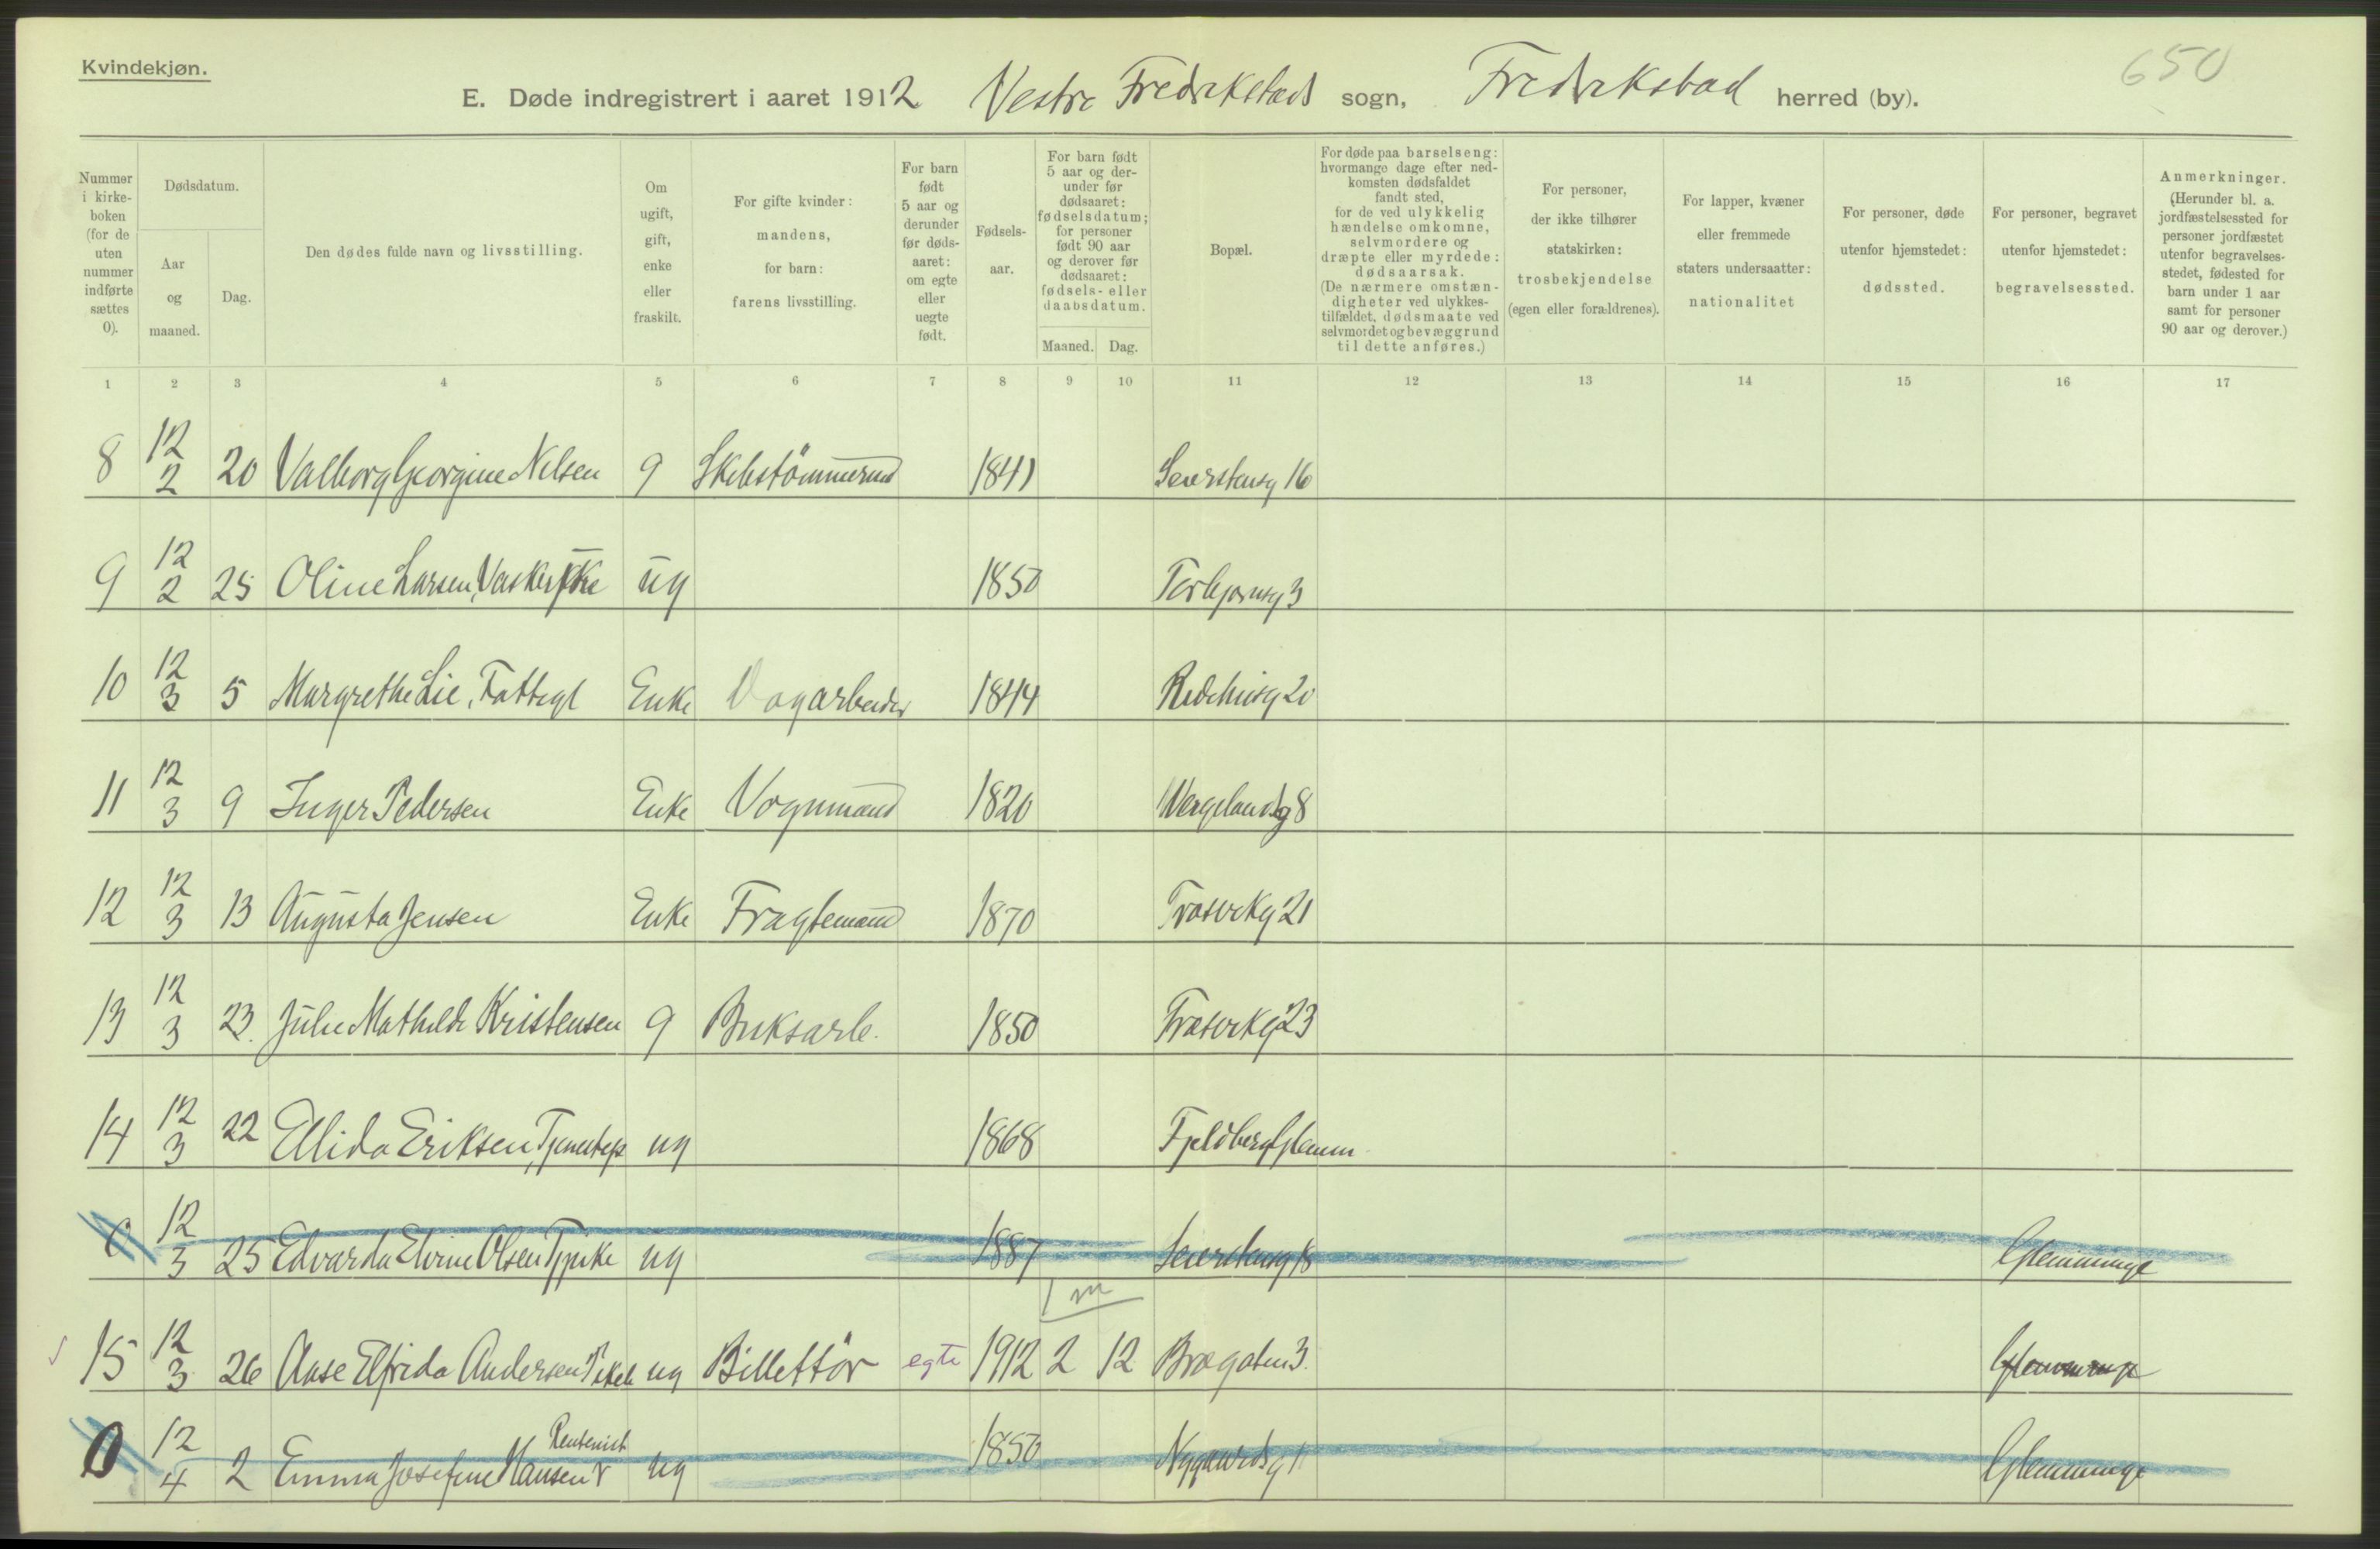 Kvindekjøn.
650
E. Døde indregistrert i aaret 1912 Vestre Fredrikstads sogn, Fredrikstad herred (by).
Nummer i kirke-boken (for de uten nummer indførte sættes 0).
Dødsdatum.
Aar og maaned.
Dag.
Den dødes fulde navn og livsstilling.
Om ugift, gift, enke eller fraskilt.
For gifte kvinder: mandens, for barn: farens livsstilling.
For barn født 5 aar og derunder før døds-aaret: om egte eller uegte født.
Fødsels-aar.
For barn født 5 aar og der-under før dødsaaret: fødselsdatum; for personer født 90 aar og derover før dødsaaret: fødsels- eller daabsdatum.
Maaned. Dag.
Bopæl.
For døde paa barselseng: hvormange dage efter ned-komsten dødsfaldet fandt sted, for de ved ulykkelig hændelse omkomne, selvmordere og dræpte eller myrdede: dødsaarsak. (De nærmere omstæn-digheter ved ulykkes-tilfældet, dødsmaate ved selvmordet og bevæggrund til dette anføres.)
For personer, der ikke tilhører statskirken: trosbekjendelse (egen eller forældrenes).
For lapper, kvæner eller fremmede staters undersaatter: nationalitet
For personer, døde utenfor hjemstedet: dødssted.
For personer, begravet utenfor hjemstedet: begravelsessted.
Anmerkninger. (Herunder bl. a. jordfæstelsessted for personer jordfæstet utenfor begravelses-stedet, fødested for barn under 1 aar samt for personer 90 aar og derover.)
1 2 3 4 5 6 7 8 9 10 11 12 13 14 15 16 17
8 12/2 20 Valborg Georgine Nilsen g Skibstømmermd 1841 Seierstensg 16
9 12/2 25 Oline Larsen, ug 1850 Torbjørnsg 3
10 12/3 5 Margrethe Lie, Fattigl Enke Dagarbeider 1844 20
11 12/3 9 Inger Pedersen Enke Vognmand 1820 Wergelandsg 8
12 12/3 13 Augusta Jensen Enke Fragtemand 1870 Trosvikg 21
13 12/3 23. Julie Mathilde Kristensen g Bruksarb. 1850 Trosvikg 23
14 12/3 22 Ellida Eriksen, ug 1868 Fjeldberg Glemm
0 12/3 25 Edvarda Elvine Olsen Tjpike ug 1887 Seierstensg 18 Glemminge
1 m
15 12/3 26 Aase Elfrida Andersen Pikeb ug Billettør egte 1912 2 12 Brogaten 3. Glemminge
Rentenist
0 12/4 2 Emma Josefine Hansen ug 1850 Nygaardsg 11 Glemminge